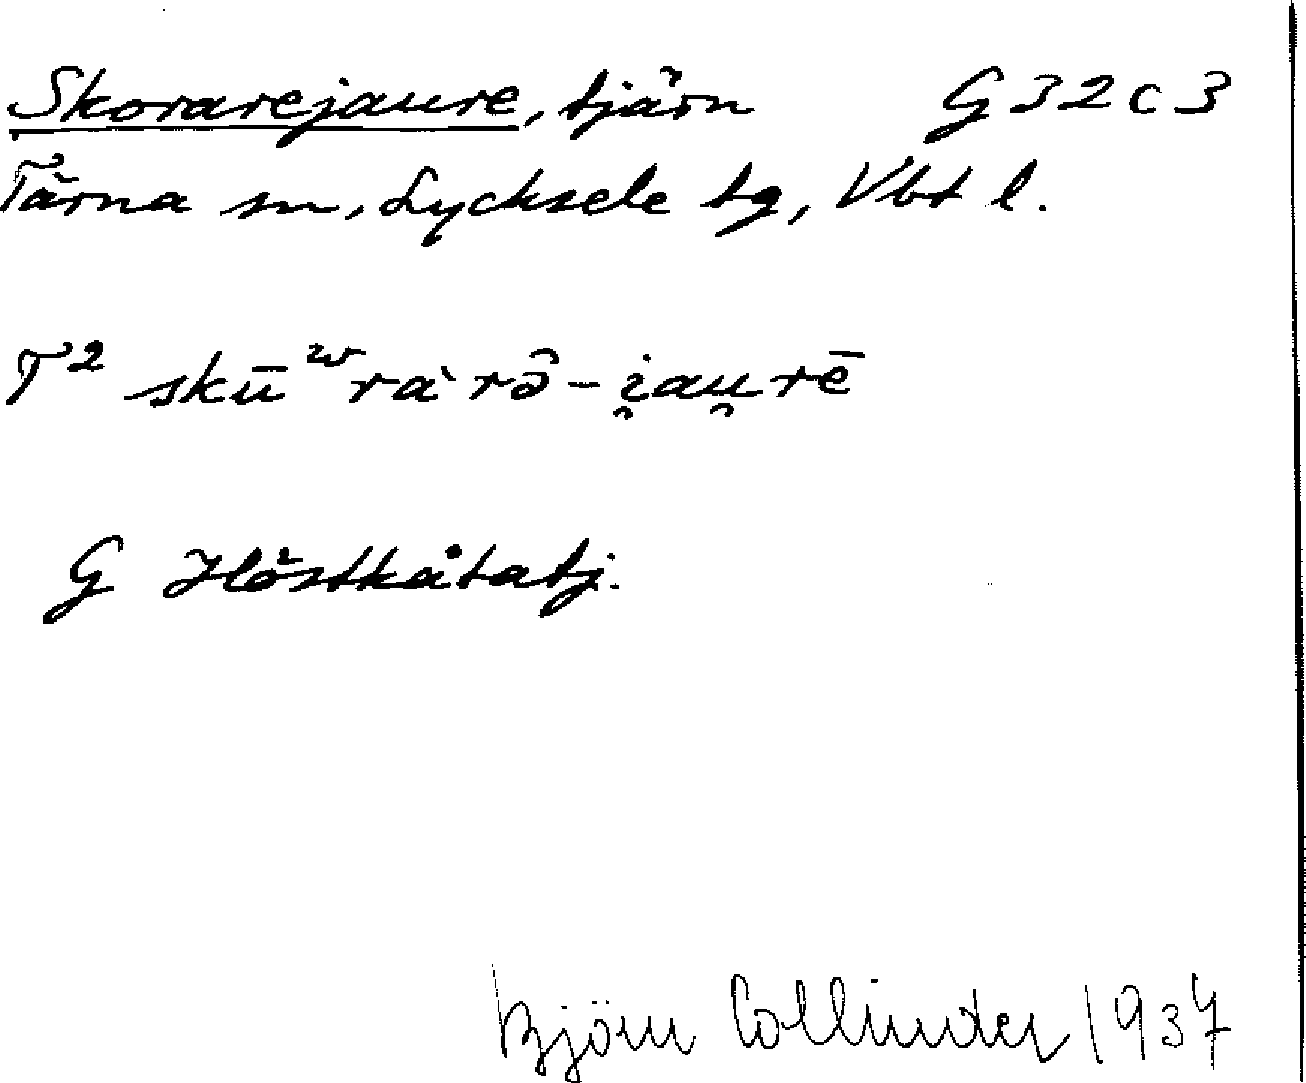 Skorarejaure, tjärn G32c3
Tärna sn, Lycksele tg, Vbt l.
T² skūʷràrə̂-i̯au̯rē
G Höstkåtatj.
Björn Collinder 1937